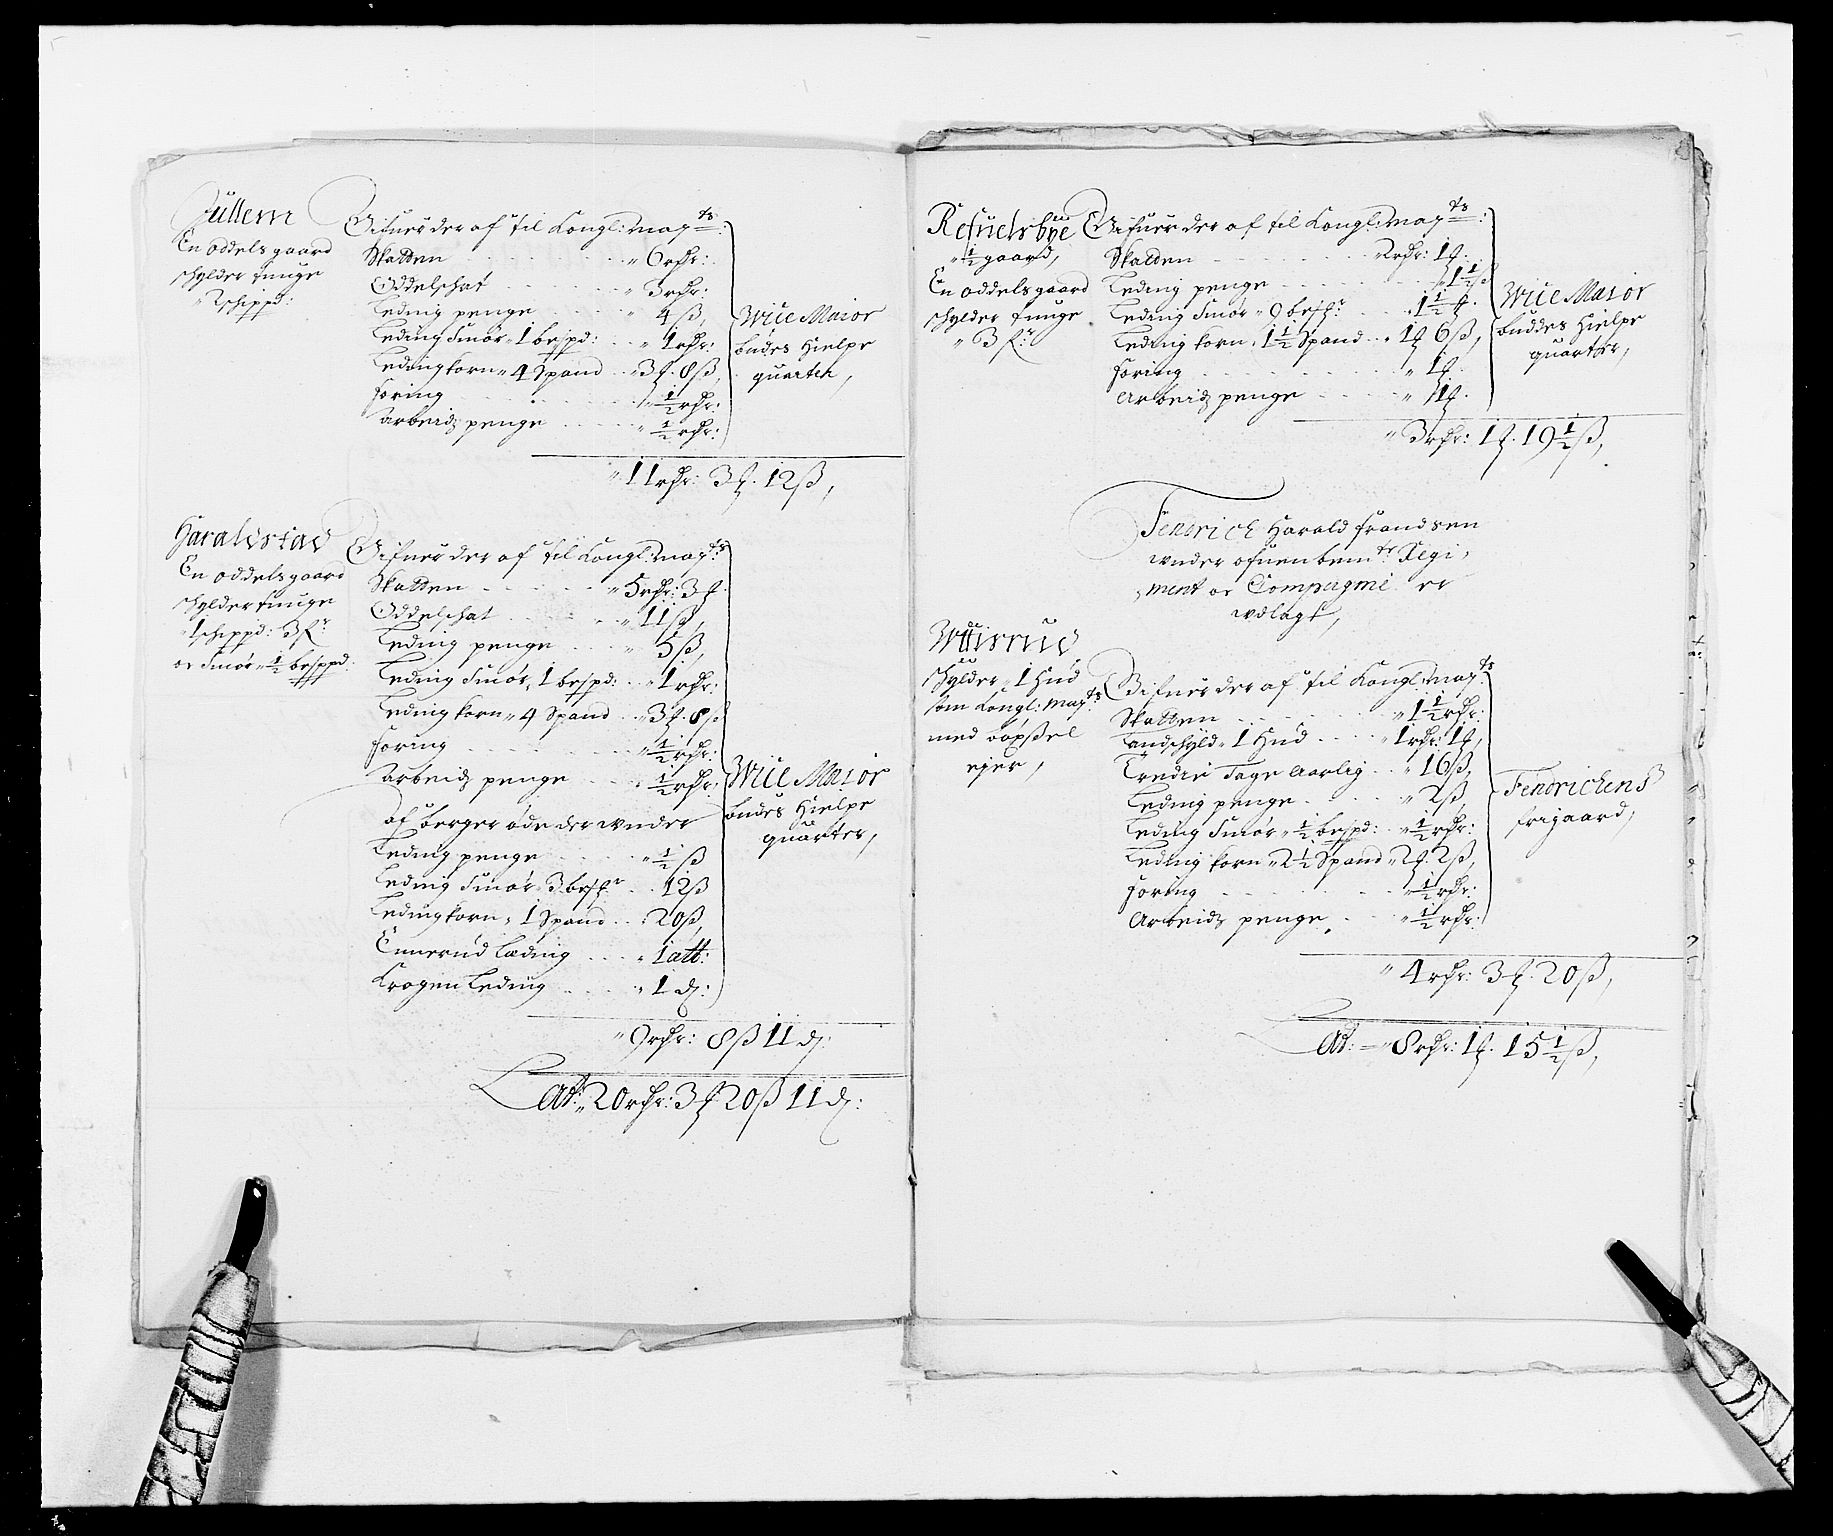 Jullem
En oddels gaard
schylder tunge
" 2 schippd:
Gifues der af til Kongl: May:ts
Skatten " 6 rdr:
Oddelschat " 3 rdr:
Leding penge " 4 ß,
Leding Smør " 1 bespd: " 1 rdr:
Leding korn " 4 Spand " 3 ƒ. 8 ß,
foring " ½ rdr:
arbeids penge " ½ rdr:
Wice Maior
Budes Hielpe
quarter,
" 11 rdr: 3 ƒ. 12 ß,
Haraldstad
En oddels gaard
schylder tunge
1 schippd: 3 f:r
oc Smør " ½ besppd:
Gifues der af til Kongl: May:ts
Skatten " 5 rdr: 3 ƒ.
Oddelschat " 11 ß,
Leding penge " 5 ß,
Leding Smør " 1 bespd: " 1 rdr:
Leding korn " 4 Spand " 3 ƒ. 8 ß
foring " ½ rdr:
Arbeids penge " ½ rdr:
af berger øde der wnder
Leding penge " ½ ß
Leding Smør " 3 besf:r 12 ß
Leding korn " 1 Spand " 20 ß,
Ennerud Leding " 1 alb:
Krogen Leding " 1 d:
Wice Maior
Budes Hielpe
quarter,
" 9 rdr: 8 ß 11 d:
Lat: " 20 rdr: 3 ƒ. 20 ß 11 d:
Refuelsbye
" ½ gaard,
En oddels gaard
schylder tunge
" 3 f:r
Gifues der af til Kongl: May:ts
Skatten " 2 rdr: 1 ƒ.
Leding penge " 1½ ß
Leding Smør " 9 besf:r " 1½ ƒ.
Leding korn " 1½ Spand " 1 ƒ 6 ß,
foring " 1 ƒ.
Arbeids penge " 1 ƒ.
Wice Maior
Buddes Hielpe
quarter,
" 3 rdr: 1 ƒ. 19½ ß,
Fendrich Harald frandsen
wnder ofuenbem:te Regi,
ment oc Compagnie er
wdlagt,
Wllisrud
schylder " 1 Hud
som Kongl: May:ts
med bøxsel
ejer,
Gifues der af til Kongl: May:ts
Skatten " 1½ rdr:
Landschyld " 1 Hud " 1 rdr: 1 ƒ,
Tredie Tage Aarlig " 16 ß,
Leding penge " 2 ß,
Leding Smør " ½ bespd: " ½ rdr:
Leding korn " 2½ Spand " 2 ƒ. 2 ß,
foring " ½ rdr:
Arbeids penge " ½ rdr:
Fendrichens
frigaard,
" 4 rdr: 3 ƒ. 20 ß,
Lat: " 8 rdr: 1 ƒ. 15½ ß,